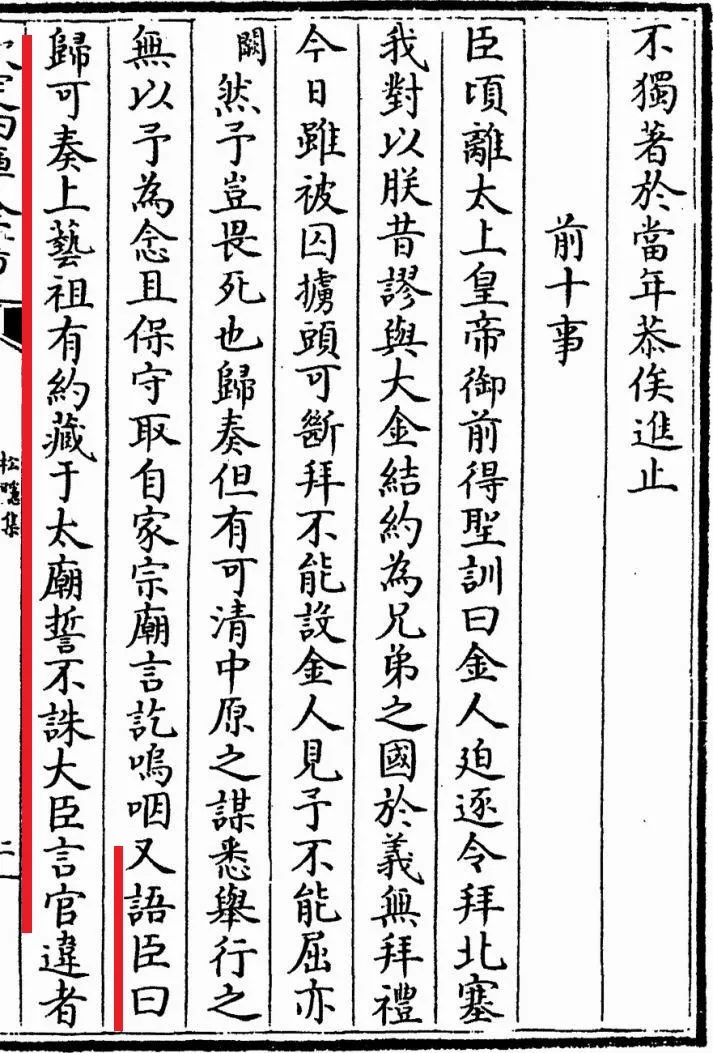 不獨著於當年恭俟進止
前十事
臣頃離太上皇帝御前得聖訓曰金人迫逐令拜北塞
我對以朕昔謬與大金結約為兄弟之國於義無拜禮
今日雖被囚擄頭可斷拜不能設金人見予不能屈亦
闕然予豈畏死也歸奏但有可清中原之謀悉舉行之
無以予為念且保守取自家宗廟言訖嗚咽又語臣曰
歸可奏上藝祖有約藏于太廟誓不誅大臣言官違者
松隱集
二